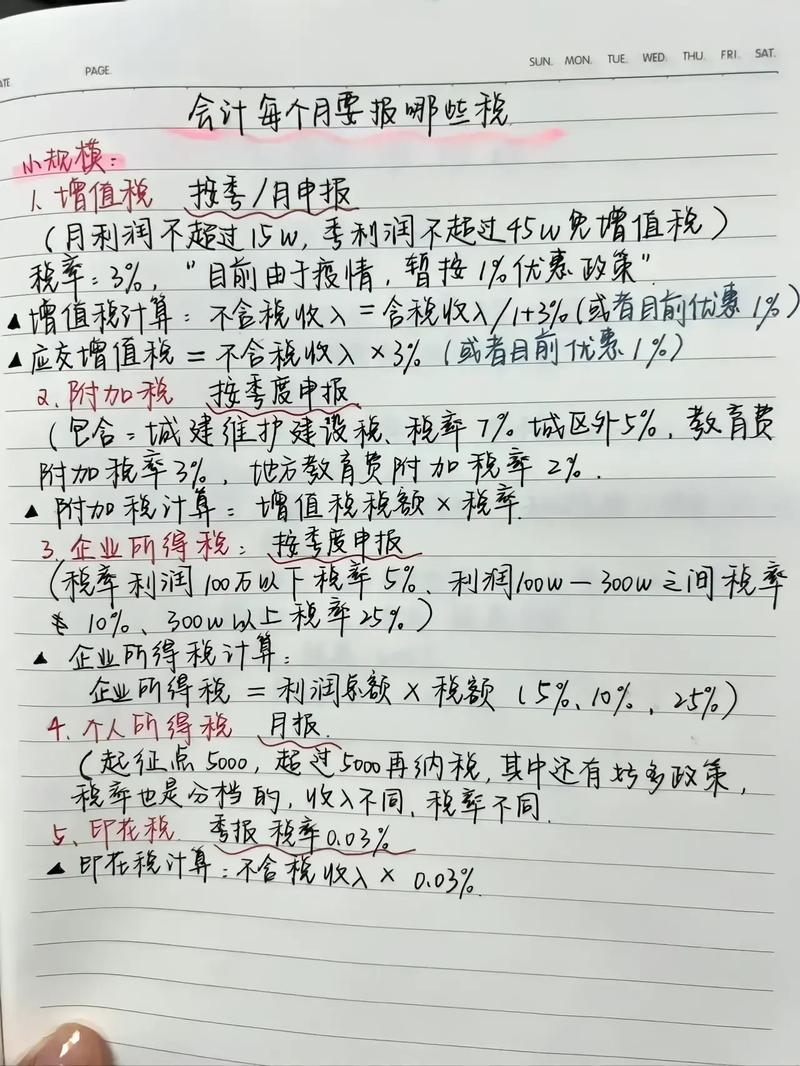 ATE
PAGE.
SUN. MON. TUE. WED. THU. FRI. SAT.
会计每个月要报哪些税
小规模:
1、增值税 按季/月申报
(月利润不超过15W,季利润不超过45W免增值税)
税率:3%,"目前由于疫情,暂按1%优惠政策"
▲增值税计算:不含税收入=含税收入/1+3%(或者目前优惠1%)
▲应交增值税=不含税收入×3%(或者目前优惠1%)
2、附加税 按季度申报
(包含=城建维护建设税、税率7%城区外5%,教育费
附加税率3%,地方教育费附加税率2%.
▲附加税计算=增值税税额×税率.
3、企业所得税:按季度申报
(税率利润100万以下税率5%、利润100W—300W之间税率
10%、300W以上税率25%)
▲企业所得税计算:
企业所得税=利润总额×税额(5%、10%、25%)
4、个人所得税 月报.
(起征点5000,超过5000再纳税,其中还有好多政策,
税率也是分档的,收入不同,税率不同.
5、印花税 季报 税率0.03%
▲印花税计算:不含税收入×0.03%.